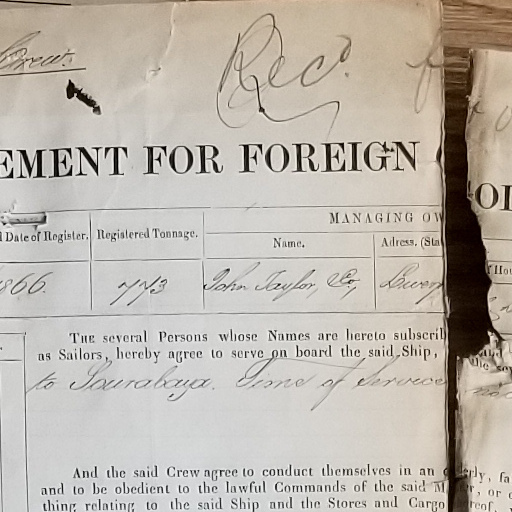 Crew.
Recd.
EMENT FOR FOREIGN
MANAGING OW
Date of Register.
Registered Tonnage.
Name.
Adress, (Sta
866.
773
John Taylor, Co,
The several Persons whose Names are hereto subscrib
as Sailors, hereby agree to serve on board the said Ship,
to Sourabaya. Time of Service
And the said Crew agree to conduct themselves in an
and to be obedient to the lawful Commands of the said M
thing relating to the said Ship and the Stores and Cargo